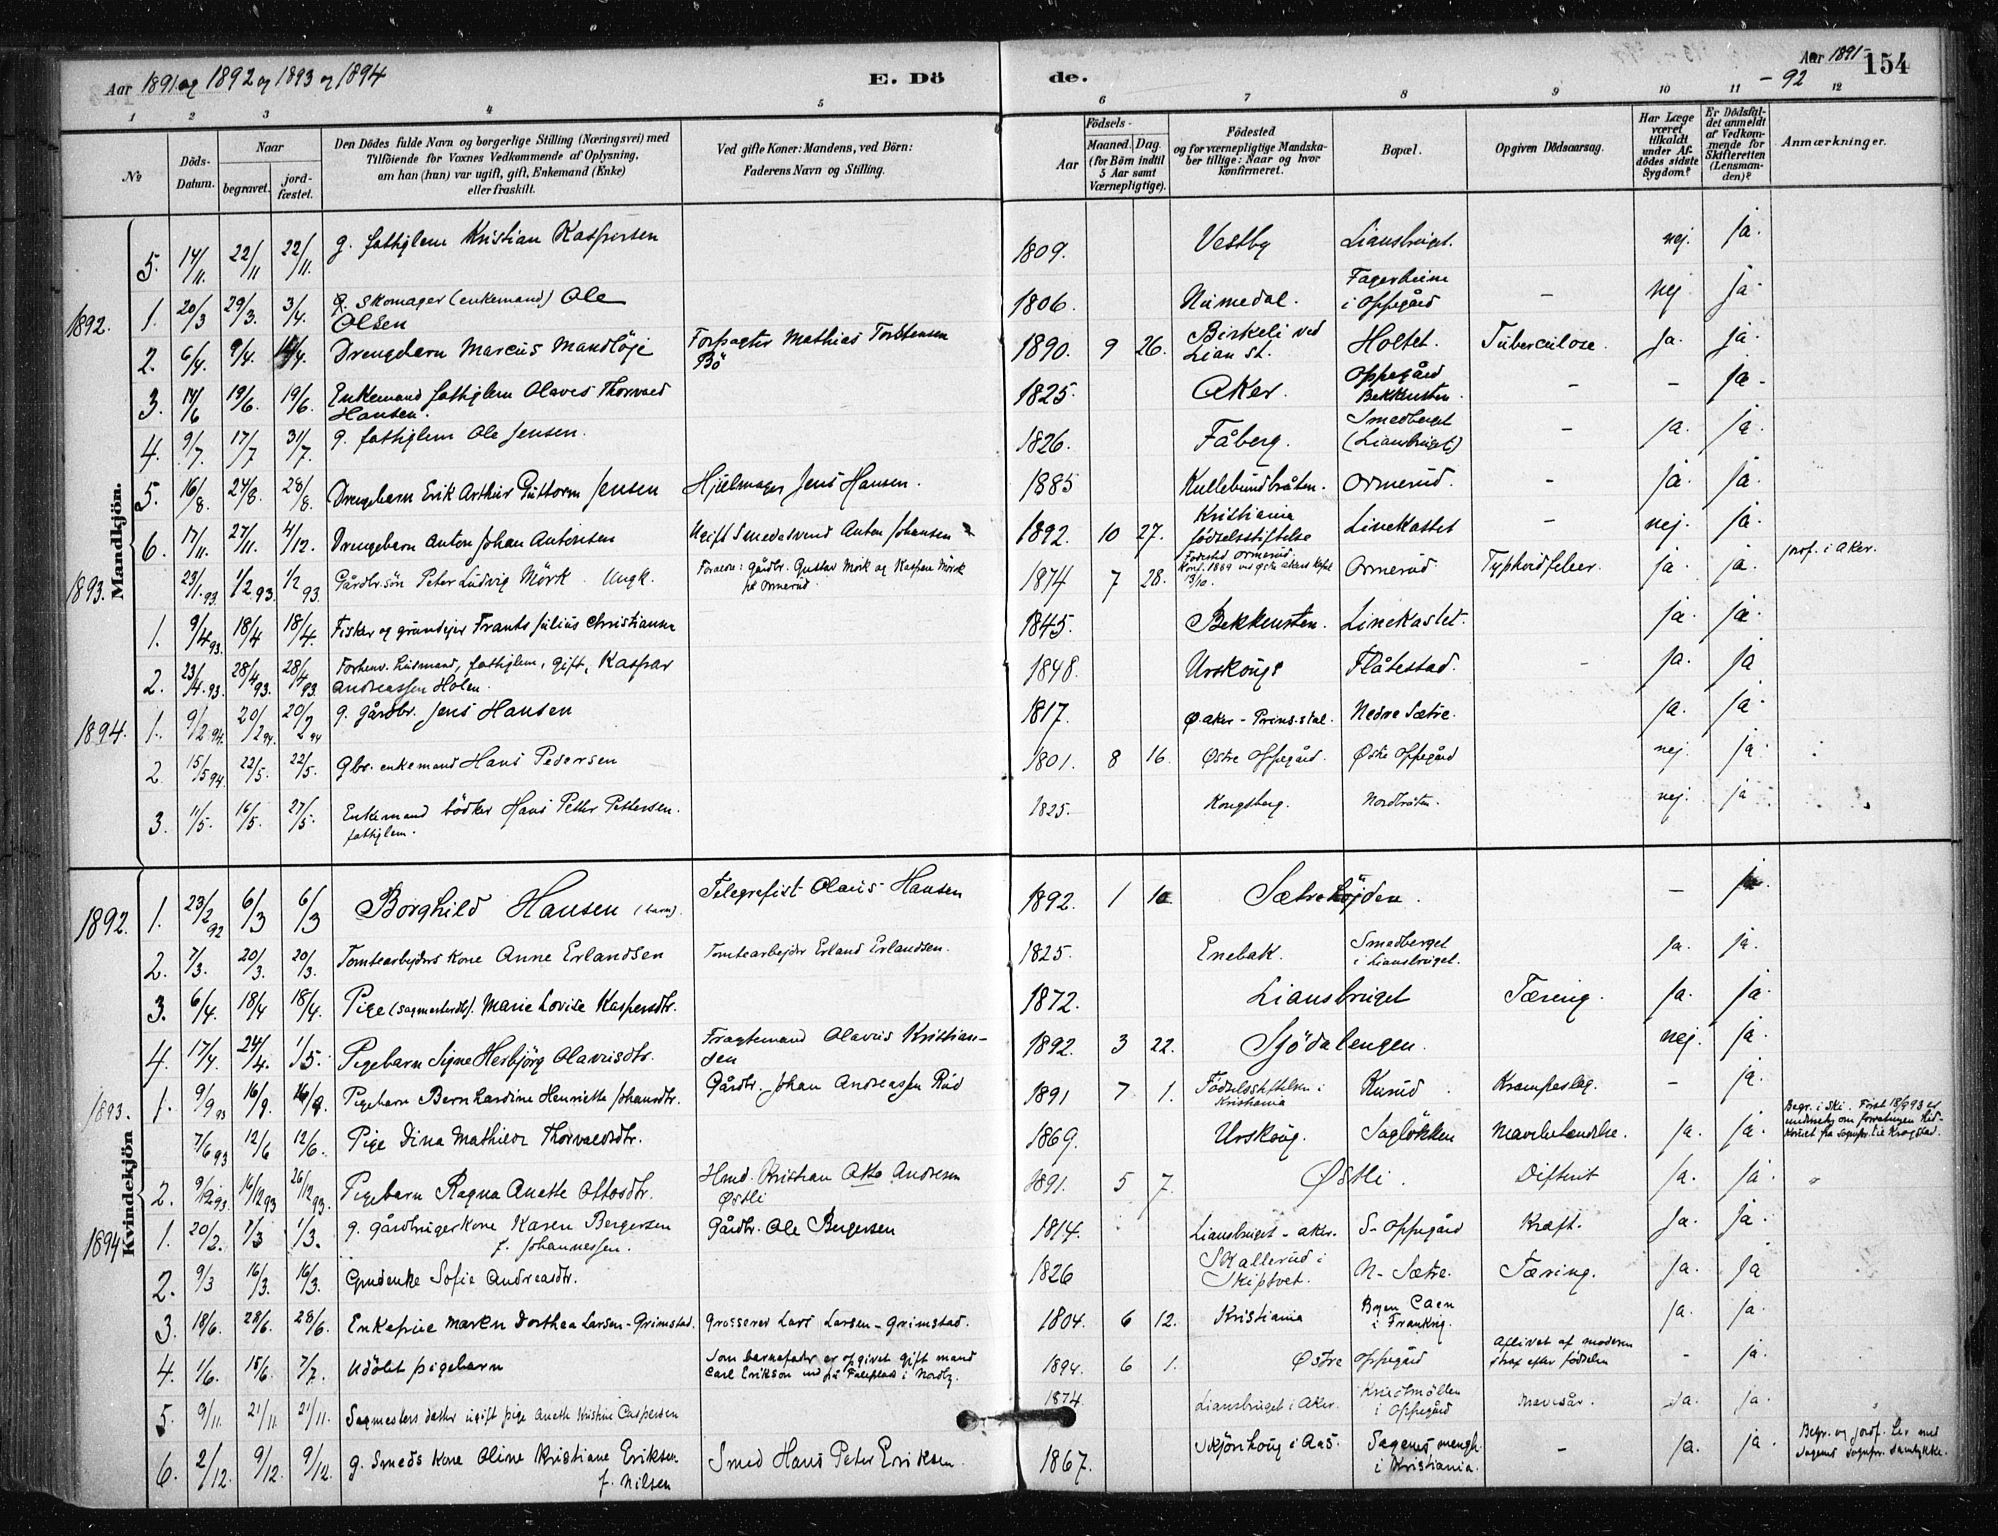 Aar 1891 og 1892 og 1893 og 1894
E. Dö
de.
Aar 1891-
-92
154
1 2 3 4 5 6 7 8 9 10 11 12
No
Döds-Datum.
Naar
begravet.
jord-fæstet.
Den Dödes fulde Navn og borgerlige Stilling (Næringsvei) med
Tilföiende for Voxnes Vedkommende af Oplysning,
om han (hun) var ugift, gift, Enkemand (Enke)
eller fraskilt.
Ved gifte Koner: Mandens, ved Börn:
Faderens Navn og Stilling.
Födsels-
Aar
Maaned. Dag.
(for Börn indtil
5 Aar samt
Værnepligtige).
Födested
og for værnepligtige Mandska-
ber tillige: Naar og hvor
konfirmeret.
Bopæl.
Opgiven Dödsaarsag.
Har Læge
været
tilkaldt
under Af-
dödes sidste
Sygdom?
Er Dödsfal-
det anmeldt
af Vedkom-
mende for
Skifteretten
(Lensman-
den)?
Anmærkninger.
Mandkjön.
5. 14/11. 22/11 22/11. g. fattiglem Kristian Kaspersen 1809. Vestby Liansbruget. nej. ja.
1892. 1. 20/3 29/3. 3/4. g. skomager (enkemand) Ole
Olsen 1806. Numedal. Fagerheim
i Oppegård - nej ja
2. 6/4. 9/4. Drengebarn Marcus Mandlöje Forpagter Mathias Torstensen
Bö 1890. 9 26. Birkeli ved
Lian st. Holtet. Tuberculose. Ja. ja
3. 14/6 19/6. 19/6. Enkemand fattiglem Olaves Thorvald
Hansen. 1825. Aker. Oppegård
Bekkensten. - - ja
4. 9/7. 17/7 31/7. g. fattiglem Ole Jensen. 1826. Fåberg. Smedberget
(Liansbruget) - ja. ja
5. 16/8. 24/8. 28/8. Drengebarn Erik Arthur Guttorm Jensen Hjulmager Jens Hansen. 1885 Kullebundbråten. Ormerud. ja. ja
6. 17/11. 27/11. 4/12. Drengebarn Anton Johan Antonsen Ugift Smedesvend Anton Johansen 1892. 10 27. Kristiania
födselsstiftelse Linekastet - nej. ja.
1893. 23/1.93. 1/2 93. 1/2 93. Gårdbr.sön Peter Ludvig Mörk. Ungk. Foræld: gårdbr. Gustav Mörk og Kaspara Mörk
på Ormerud 1874 7 28. Födested Ormerud. Ormerud Typhoidfeber. ja. ja. jordf. i Aker.
1. 9/4 93. 18/4 18/4. Fisker og grundejer Frants Julius Christiansen 1845. Bekkensten. Linekastet. ja. ja
2. 23/4.93. 28/4 93. 28/4 93. Forhenv. husmand, fattiglem, gift, Kasper
Andreassen Holen. 1848. Urskoug Flåtestad. ja. ja
1894. 1. 9/2 94. 20/2 94. 20/2 94 g. gårdbr. Jens Hansen 1817. Ø aker - Prinsdal. Nedre Sætre. ja. ja
2. 15/5 94 22/5. 22/5. Gbr. enkemand Hans Pedersen 1801. 8 16. Østre Oppegård. Østre Oppegård nej. ja
3. 11/5. 16/5. 27/5. Enkemand bödker Hans Petter Pettersen.
fattiglem. 1825. Kongsberg. Nordbråten. nej. ja
Kvindekjön
1892. 1. 23/2 92 6/3 6/3 Borghild Hansen (barn). Telegrafist Olaus Hansen 1892. 1 10. Sætrehöjden. - ja.
2. 7/3. 20/3. 20/3. Tomtearbejders kone Anne Erlandsen Tomtearbejder Erland Erlandsen. 1825. Enebak. Smedberget
i Liansbruget. ja. ja.
3. 6/4. 18/4 18/4. Pige (sagmesterdtr). Marie Lovise Kaspersdtr. 1872. Liansbruget Tæring. ja. ja
4. 17/4 24/4. 1/5. Pigebarn Signe Herbjörg Olavusdtr. Fragtemand Olavus Kristian-
sen 1892. 3 22. Sjödalengen. nej. ja
1893. 1. 9/9 93 16/9. 16/9 Pigebarn Bernhardine Henriette Johansdtr. Gårdbr. Johan Andreassen Rud 1891 7 1. Födselsstiftelsen i
Kristiania Kurud. Krampeslag. - ja.
7/6 93 12/6 12/6. Pige Dina Mathilde Thorvaldsdtr. 1869. Urskoug. Saglökken Mavebetændelse. ja. ja. Begr. i Ski. Först 18/9 93 er
2. 9/12 93. 16/12 93 26/12 93. Pigebarn Ragna Anette Ottosdtr. Hmd. Kristian Otto Andersen
Østli 1891. 5 7. Østli. Difterit ja. ja
1894 1. 20/2. 1/3 1/3. g. gårdbrugerkone Karen Bergersen
f. Johannessen. Gårdbr. Ole Bergersen 1814. Liansbruget - Aker. S- Oppegård Kræft. Ja. ja
2. 9/3 16/3. 16/3 Grdenke Sofie Andreasdtr. 1826 Skallerud i
Skiptvet. N- Sætre. Tæring. Ja. ja
3. 18/6. 28/6. 28/6. Enkefrue Maren Dorthea Larsen-Grimstad. Grosserer Lars Larsen-Grimstad. 1804. 6 12. Kristiania Byen Caen
i Frankrig. ja. ja.
4. 1/6. 15/6. 7/7. Udöbt pigebarn Som barnefader er opgivet gift mand
Carl Erikson 1894. 6 1. Østre Oppegård Aflivet af moderen
strax efter födselen - ja.
5. 9/11. 21/11. 21/11. Sagmesters datter ugift pige Anette Kristine Caspersen 1874. Liansbruget i Aker. i Oppegård Mavesår. Ja. ja
6. 2/12. 9/12. 9/12. g. Smeds kone Oline Kristiane Eriksen
f. Nilsen Smed Hans Peter Eriksen. 1867. Skjörihoug i Aas. Sagenes menigh.
i Kristiania. - ja. ja. Begr. og jordf. her med
Sagenes sognepr. samtykke.